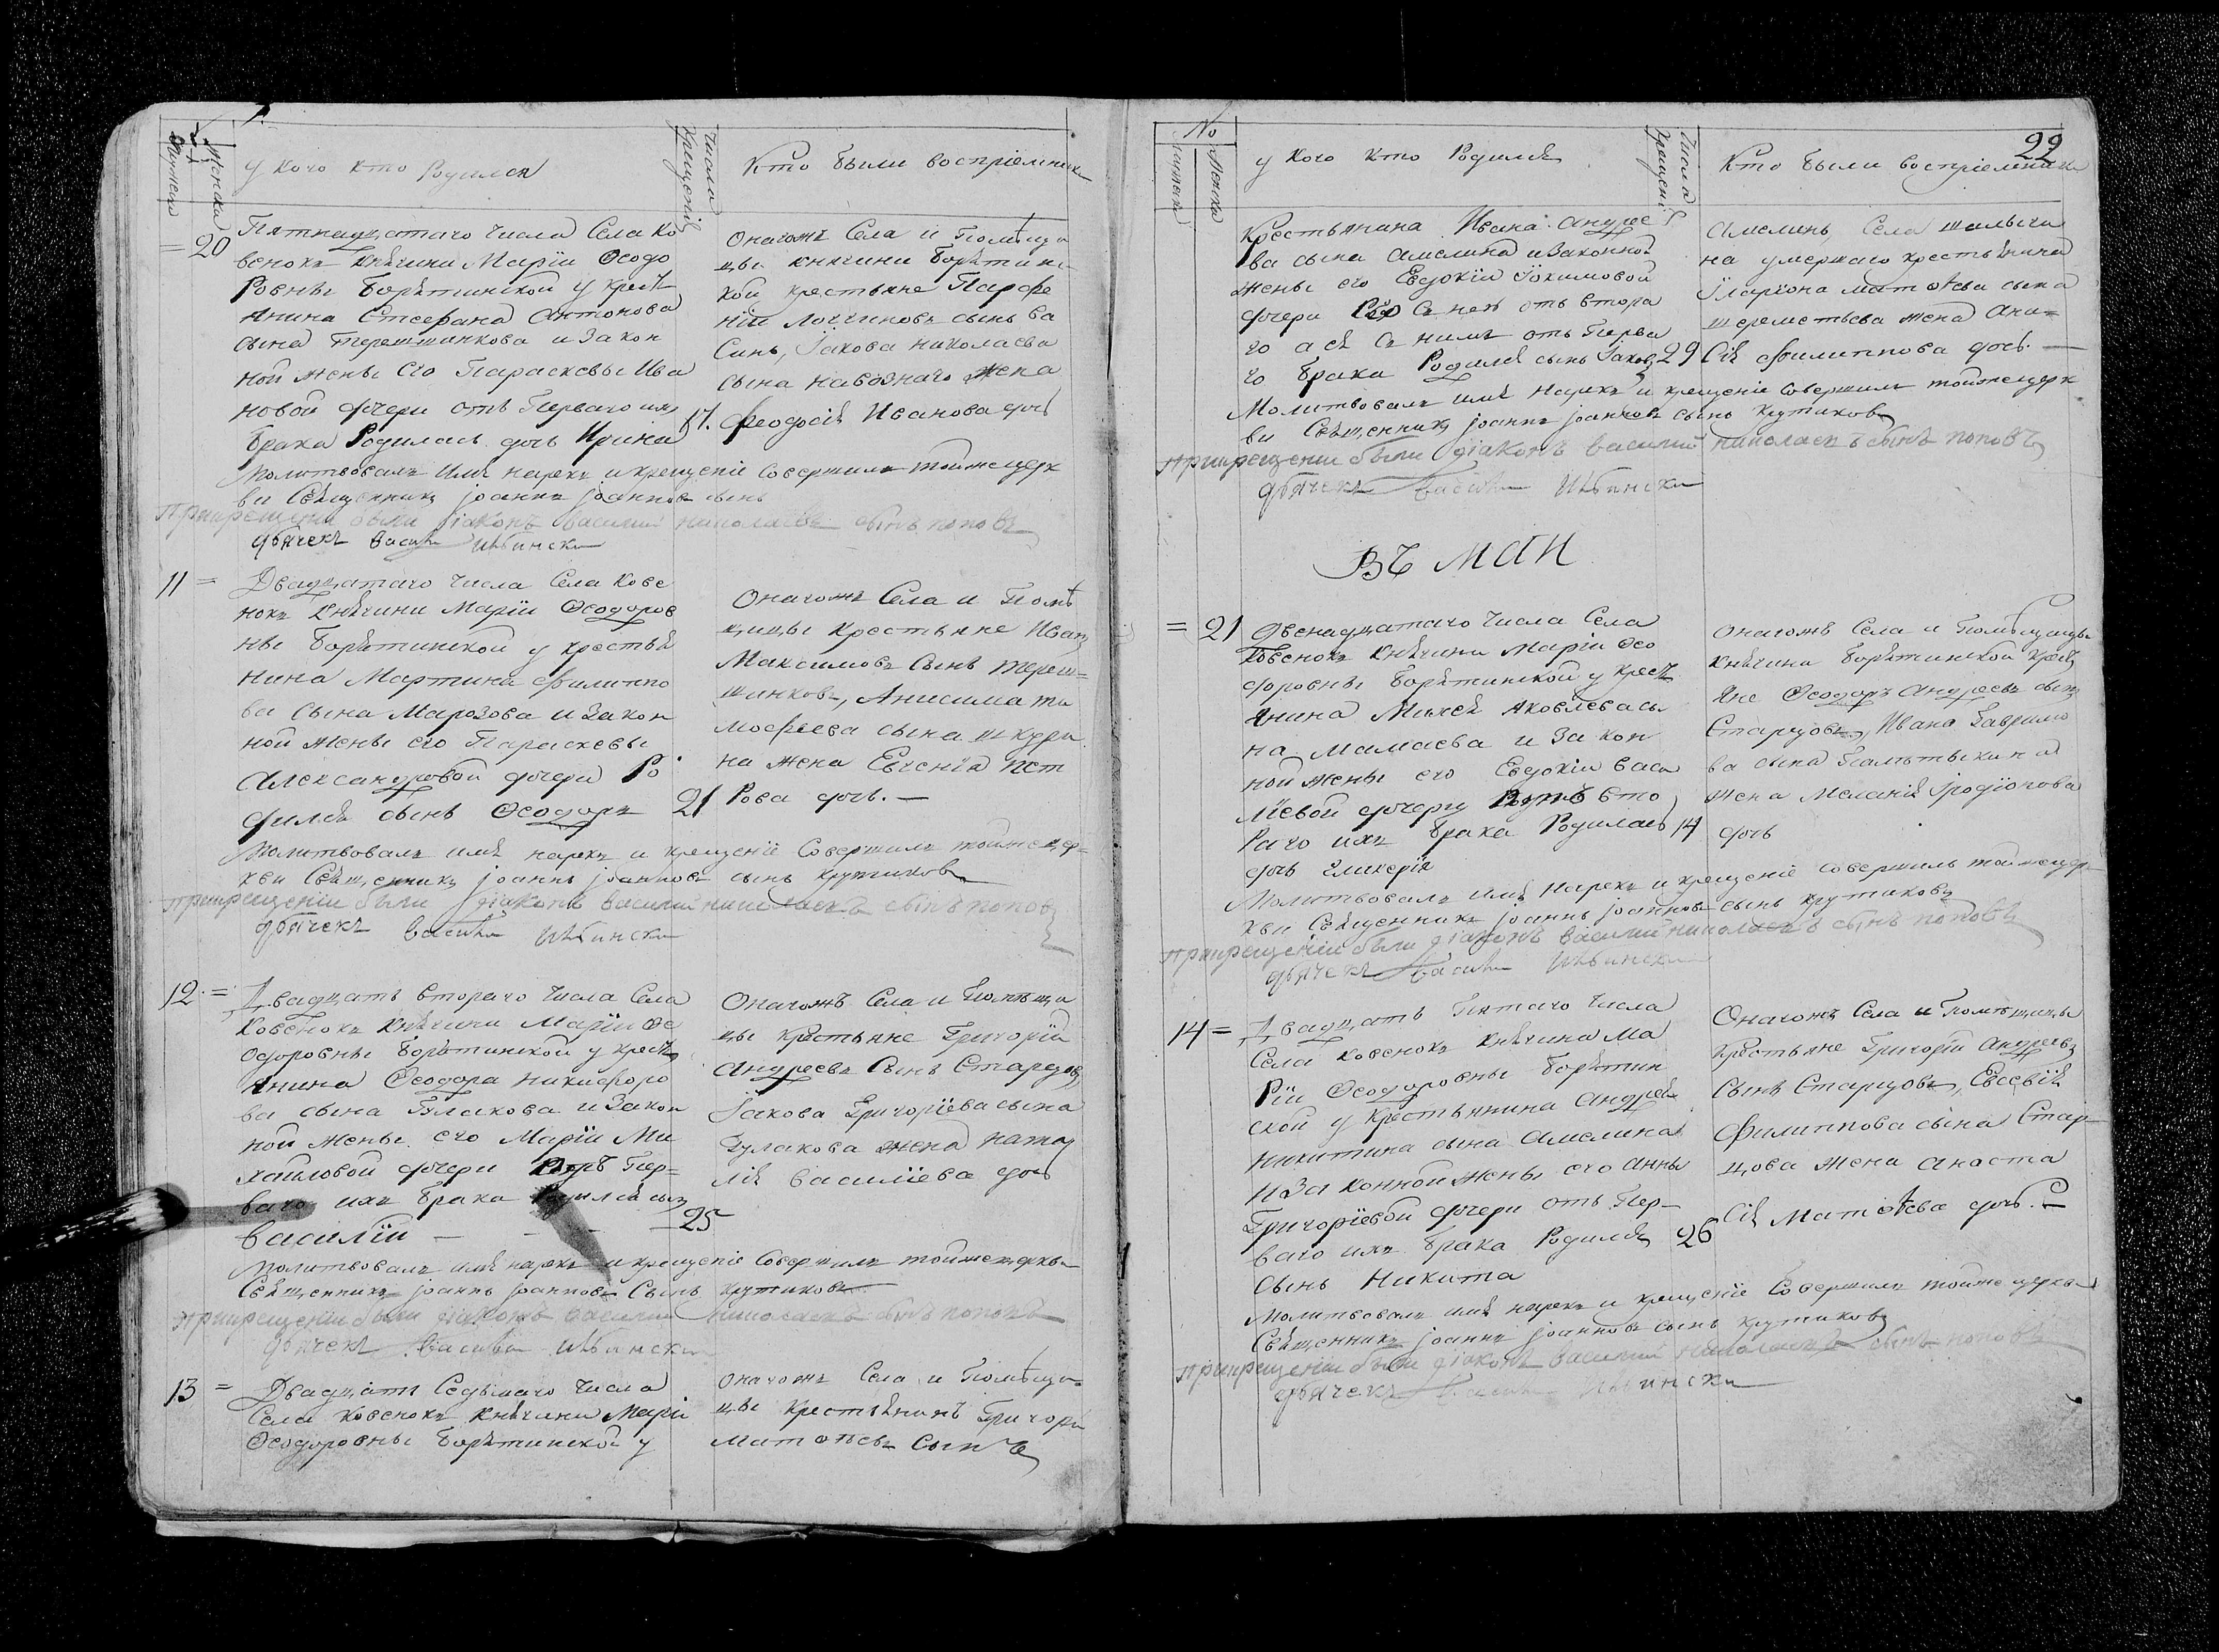 у кого кто Родился
Числа Крещенія
Кто были воспріемники
=20
Пятнадцатаго Числа Села Ко
венокъ Княгини Маріи Ѳеодо
Ровны Борятинской у крест
янина Стефана Антонова
сына Терешшинкова и Закон
ной жены Его Параскевы Ива
новой дочери отъ Перваго ихъ
брака Родилась дочь Ирина
17.
Онагожъ Села и Помѣщи
цы княгини Борятинс
кой крестьяне Парфе
ній Логгиновъ сынъ Ва
Синъ, Іакова николаева
сына навознаго жена
Феодосія Иванова дочь
Молитвовалъ имя нарекъ и крещеніе Совершилъ тойже церк
ви Священникъ Іоаннъ Іоанновъ сынъ
При крещени были діаконъ василий николаевъ сынъ поповъ
дьячекъ васили
11 =
Двадцатаго Числа Села Кове
нокъ Княгини Маріи Ѳеодоров
ны Борятинской у крестья
нина Мартина Филиппо
ва сына Марозова и Закон
ной жены его Параскевы
Александровой дочери Ро
дился сынъ Ѳеодоръ
21
Онагожъ Села и Помѣ
щицы Крестьяне Иванъ
Максимовъ Сынъ Тереш=
шинковъ, Анисима ти
мофеева сына шкури
на жена Евгенія пет
Рова дочь. —
Молитвовалъ имя нарекъ и крещеніе Совершилъ тойже цер=
кви Священникъ Іоаннъ Іоанновъ сынъ крутиковъ
при крещеніи были діаконъ василий николаевъ сынъ поповъ
дьячекъ васили
12. =
Двадцать втораго Числа Села
Ковенокъ Княгини Маріи Ѳе
одоровны Борятинской у крест
янина Ѳеодора Никифоро
ва сына Гулакова и Закон
ной жены его Маріи Ми
хайловой дочери отъ Пер=
ваго ихъ брака Родился сынъ
Василій — - - - 25
Онагожъ Села и Помѣщи
цы крестьяне Григорій
Андреевъ Сынъ Старцовъ
Іакова Григоріева сына
Гулакова жена ната
лія Василіева дочь
Молитвовалъ имя нарекъ и крещеніе Совершилъ тойже церкви
Священникъ Іоаннъ Іоанновъ Сынъ крутиковъ
при крещеніи были діаконъ василий николаевъ сынъ поповъ
дьячекъ васили
13 =
Двадцать Седьмаго Числа
Села Ковенокъ Княгини Маріи
Ѳеодоровны Борятинской у
Онагожъ Села и Помѣщи=
цы Крестьянинъ Григори
Матѳеевъ Сынъ
22
№
у кого кто Родился
Числа Крещені
Кто были воспріемники
Крестьянина Ивана Андрее
ва сына Амелина и Законной
жены его Евдокіи Іокимовой
дочери С ней отъ втора
го а съ нимъ отъ Перва
го брака Родился сынъ Іаковъ 29
Амелинъ, Села шалыги
на умершаго крестьянина
Іларіона матѳѣева сына
шереметьева жена Ани=
сія Филиппова дочь. —
Молитвовалъ имя нарекъ и крещеніе Совершилъ тойже церк
ви Священникъ Іоаннъ Іоанновъ сынъ крутиковъ
при крещении были діаконъ василий николаевъ сынъ поповъ
дьячекъ васили
Въ маи
= 21
Двенадцатаго Числа Села
Ковенокъ Княгини Маріи Ѳео
доровны Борятинской у крест
янина Михея Яковлева сы
на Мамаева и Закон
ной жены его Евдокіи васи
ліевой дочери отъ вто
Раго ихъ брака Родилась 14
дочь Гликерія
Онагожъ Села и Помѣщицы
Княгини Борятинской крест
яне Ѳеодоръ Андреевъ сынъ
Старцовъ, Ивана Гаврило
ва сына жена Меланія Іродіонова
дочь
Молитвовалъ имя нарекъ и крещеніе Совершилъ тойже цер
кви Священникъ Іоаннъ Іоанновъ сынъ крутиковъ
при крещении были діаконъ василий николаевъ сынъ поповъ
дьячекъ васили
14 =
Двадцать Пятаго Числа
Села Ковенокъ Княгини Ма
Ріи Ѳеодоровны Борятин
ской у Крестьянина Андрея
Никитина сына Амелина
и Законной жены его Анны
Григоріевой дочери отъ Пер-
ваго ихъ брака Родился 26
Сынъ Никита
Онагожъ Села и Помѣщицы
Крестьяне Григорій Андреевъ
Сынъ Старцовъ, Евсевія
Филиппова сына Стар-
цова жена Анаста
сія Матѳѣева дочь. —
Молитвовалъ имя нарекъ и крещеніе Совершилъ тойже церкви
Священникъ Іоаннъ Іоанновъ сынъ крутиковъ
при крещении были діаконъ василий николаевъ сынъ поповъ
дьячекъ васили